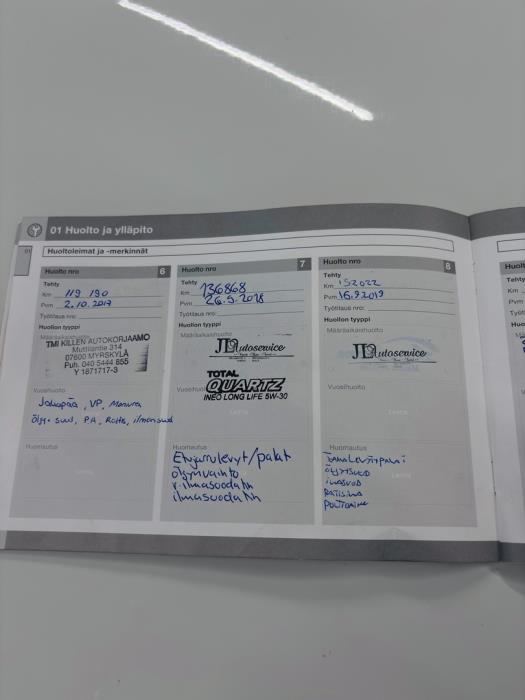 01 Huolto ja ylläpito
01
Huoltoleimat ja -merkinnät
Huolto nro 6
Tehty
Km 119 190
Pvm 2.10.2017
Työtilaus nro:
Huollon tyyppi
Määräaikaishuolto
TMI KILLEN AUTOKORJAAMO
Mutilantie 314
07600 MYRSKYLÄ
Puh. 040 5444 855
Y 1871717-3
Vuosihuolto
Jakopää, VP,
öljy- suod, PA,
Huomautus
Huolto nro 7
Tehty
Km 136868
Pvm 26.9.2018
Työtilaus nro:
Huollon tyyppi
Määräaikaishuolto
JDAutoservice
TOTAL
Vuosihuolto
QUARTZ
INEO LONG LIFE 5W-30
Huomautus
Etujarrulevyt/palat
öljynvaihto
r.ilmasuodatin
ilmasuodatin
Huolto nro 8
Tehty
Km 152022
Pvm 16.9.2019
Työtilaus nro:
Huollon tyyppi
Määräaikaishuolto
JDAutoservice
Vuosihuolto
Huomautus
öljy+suod
ilmasuod
Raitisilma
Polttoaine